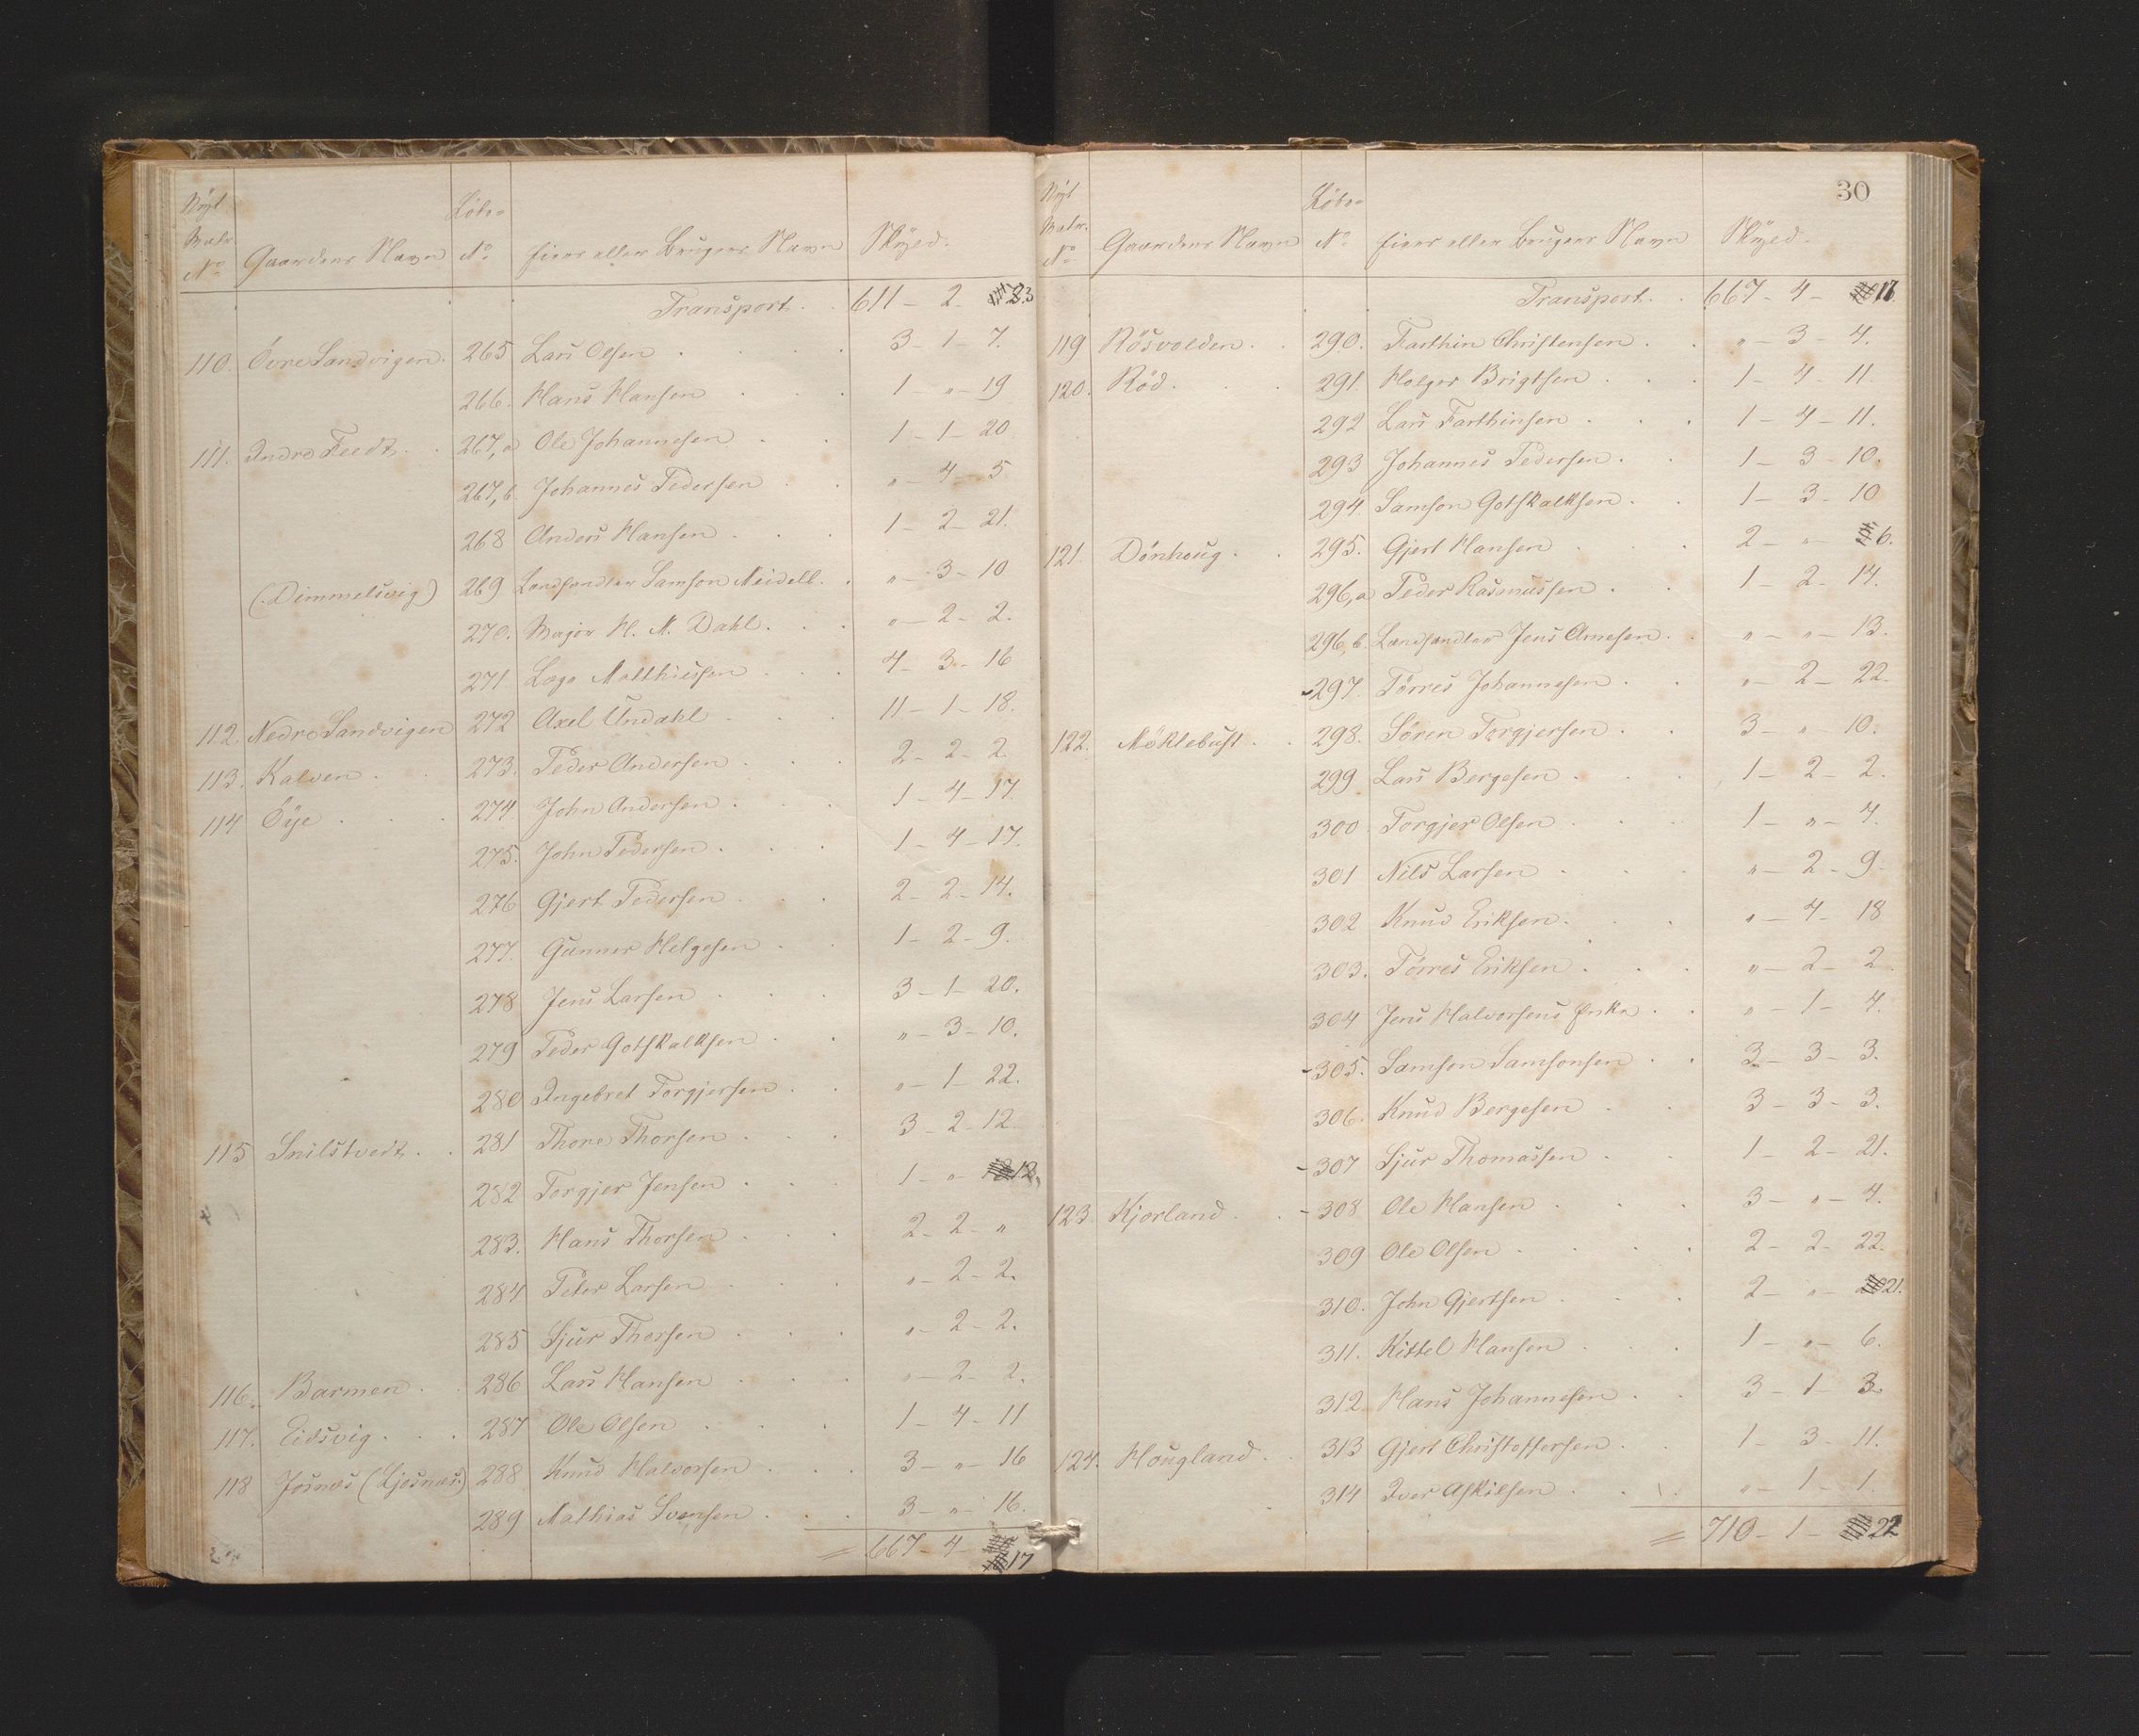 Nyt Matr. No Gaardens Navn Löbe= No Eiers eller Brugers Navn Skyld.
Transport . . 611 - 2 - 23
110. Övre Sandvigen. 265 Lars Olsen . . . . 3 - 1 - 7.
266. Hans Hansen . . . 1 - " - 19
111. Indre Feedt . . 267, a Ole Johannesen . . 1 - 1 - 20
267, b. Johannes Pedersen . . " - 4 - 5
268 Anders Hansen . . . 1 - 2 - 21.
(Dimmelsvig) 269 Landhandler Samson Neidell. . " - 3 - 10
270. Major H. M. Dahl. . . " - 2 - 2.
271 Lage Matthiesen . . . 4 - 3 - 16
112. Nedre Sandvigen 272 Axel Undahl . . . 11 - 1 - 18.
113. Kalven . . 273. Peder Andersen . . . 2 - 2 - 2.
114 Öye . . . 274 John Andersen . . . 1 - 4 - 17
275. John Pedersen . . . 1 - 4 - 17.
276 Gjert Pedersen . . . 2 - 2 - 14.
277. Gunner Helgesen . . 1 - 2 - 9.
278 Jens Larsen . . . 3 - 1 - 20.
279 Peder Gotskalksen . . " - 3 - 10.
280 Ingebret Torgjersen . . " - 1 - 22.
115 Snilstvedt . . 281 Thore Thorsen . . . 3 - 2 - 12
282 Torgjer Jensen . . . 1 - " - 12.
283. Hans Thorsen . . . 2 - 2 - "
284 Peter Larsen . . . " - 2 - 2.
285 Sjur Thorsen . . . " - 2 - 2.
116. Barmen . . 286 Lars Hansen . . . " - 2 - 2.
117. Eidsvig . . . 287 Ole Olsen . . . 1 - 4 - 11
118 Josnæs (Ljosnæs) 288 Knud Halvorsen . . . 3 - " - 16
289 Mathias Svensen . . . 3 - " - 16.
= 667 - 4 - 17
30
Nyt Matr. No Gaardens Navn Löbe= No Eiers eller Brugers Navn Skyld.
Transport . . 667 - 4 - 17
119 Rösvolden . . 290. Farthin Christensen . . " - 3 - 4.
120. Röd . . . 291. Holger Brigtsen . . . 1 - 4 - 11
292 Lars Farthinsen . . . 1 - 4 - 11.
293 Johannes Pedersen . . 1 - 3 - 10.
294. Samson Gotskalksen . . 1 - 3 - 10
121. Dönhoug . . 295. Gjert Hansen . . . 2 - " - 6.
296, a Peder Rasmussen . . 1 - 2 - 14.
296, b. Landhandler Jens Arnesen . . " - " - 13.
- 297. Törres Johannesen . . " - 2 - 22.
122. Möklebust . . 298. Sören Torgjersen . . 3 - " - 10.
299 Lars Bergesen . . . 1 - 2 - 2.
300 Torgjer Olsen . . . 1 - " - 4.
301 Nils Larsen . . . " - 2 - 9.
302 Knud Eriksen . . . " - 4 - 18
303. Törres Eriksen . . . " - 2 - 2.
304 Jens Halvorsens Enke . . " - 1 - 4.
- 305. Samson Samsonsen . . 3 - 3 - 3.
306. Knud Bergesen . . 3 - 3 - 3.
- 307 Sjur Thomassen . . 1 - 2 - 21.
123. Kjorland . . - 308 Ole Hansen . . . 3 - " - 4.
309 Ole Olsen . . . . 2 - 2 - 22.
310. John Gjertsen . . . 2 - " - 21.
311. Kittel Hansen . . . 1 - " - 6.
312 Hans Johannesen . . 3 - 1 - 3.
124. Hougland . . 313 Gjert Christoffersen . . 1 - 3 - 11.
314 Iver Askilsen . . . " - 1 - 1.
= 710 - 1 - 22